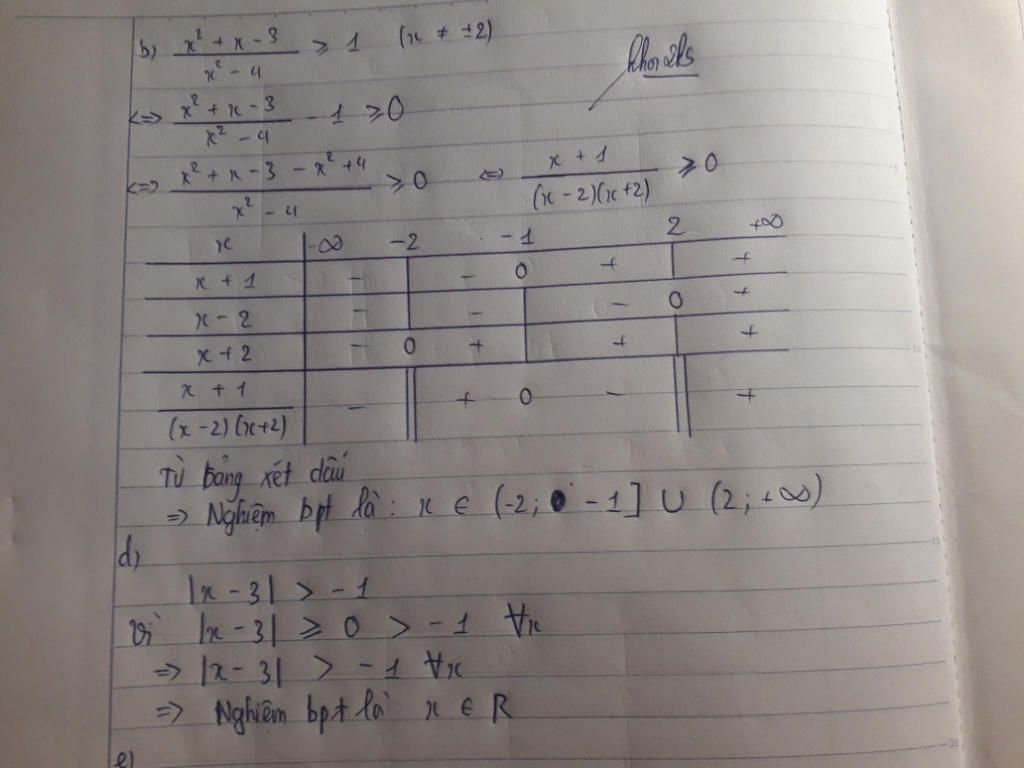 b) (x² + x - 3)/(x² - 4) ≥ 1 (x ≠ ±2)
khoi2k5
<=> (x² + x - 3)/(x² - 4) - 1 ≥ 0
<=> (x² + x - 3 - x² + 4)/(x² - 4) ≥ 0 <=> (x + 1)/((x-2)(x+2)) ≥ 0
x -∞ -2 -1 2 +∞
x + 1 - | - 0 + | +
x - 2 - | - | - 0 +
x + 2 - 0 + | + | +
(x + 1)/((x-2)(x+2)) - || + 0 - || +
Từ bảng xét dấu
=> Nghiệm bpt là: x ∈ (-2; -1] ∪ (2; +∞)
d)
|x - 3| > -1
Vì |x - 3| ≥ 0 > -1 ∀x
=> |x - 3| > -1 ∀x
=> Nghiệm bpt là x ∈ R
e)